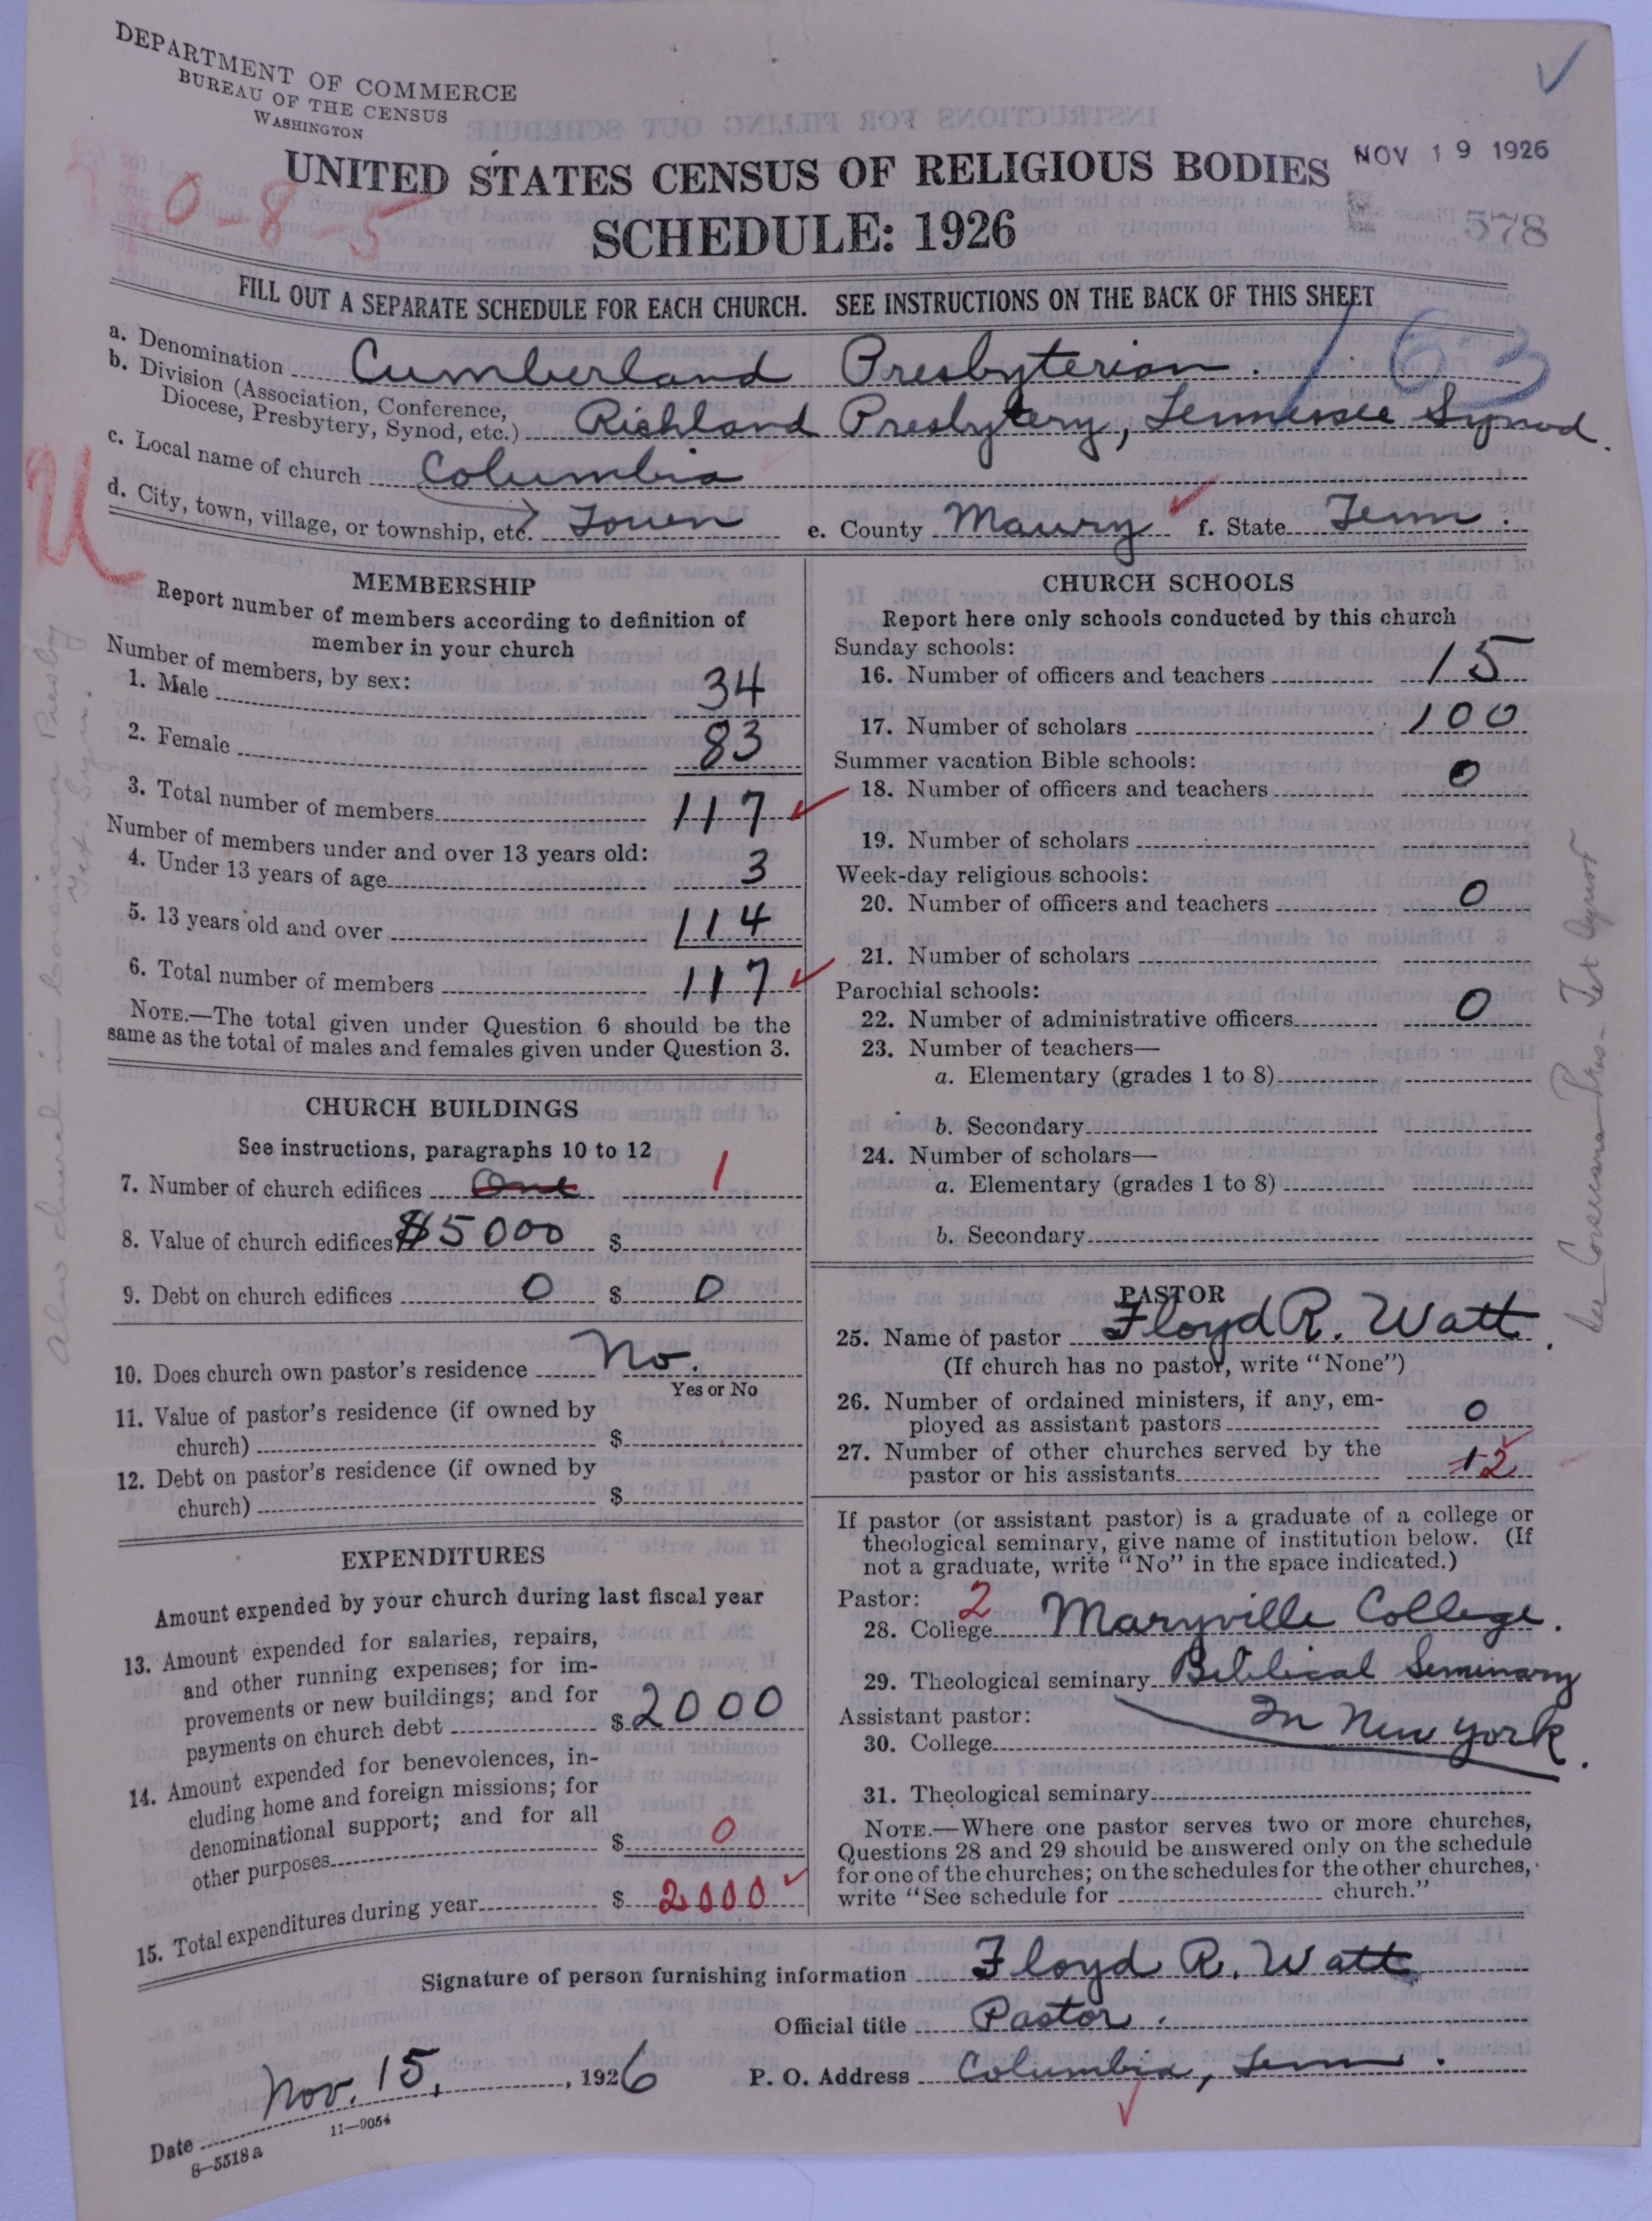 DEPARTMENT OF COMMERCE
BUREAU OF THE CENSUS
WASHINGTON
UNITED STATES CENSUS OF RELIGIOUS BODIES
NOV 19 1926
0-8-5
SCHEDULE: 1926
578
FILL OUT A SEPARATE SCHEDULE FOR EACH CHURCH. SEE INSTRUCTIONS ON THE BACK OF THIS SHEET
163
a. Denomination Cumberland Presbyterian.
b. Division (Association, Conference, Diocese, Presbytery, Synod, etc.) Richland Presbytery, Tennessee Synod.
c. Local name of church Columbia
d. City, town, village, or township, etc. Town e. County Maury f. State Tenn.
U
MEMBERSHIP
Report number of members according to definition of
member in your church
Number of members, by sex:
1. Male 34
2. Female 83
3. Total number of members 117
Number of members under and over 13 years old:
4. Under 13 years of age 3
5. 13 years old and over 114
6. Total number of members 117
NOTE.—The total given under Question 6 should be the
same as the total of males and females given under Question 3.
CHURCH BUILDINGS
See instructions, paragraphs 10 to 12
7. Number of church edifices One 1
8. Value of church edifices $5000 $
9. Debt on church edifices 0 $ 0
10. Does church own pastor's residence No.
Yes or No
11. Value of pastor's residence (if owned by
church) $
12. Debt on pastor's residence (if owned by
church) $
EXPENDITURES
Amount expended by your church during last fiscal year
13. Amount expended for salaries, repairs,
and other running expenses; for im-
provements or new buildings; and for
payments on church debt $2000
14. Amount expended for benevolences, in-
cluding home and foreign missions; for
denominational support; and for all
other purposes $ 0
15. Total expenditures during year $ 2000
CHURCH SCHOOLS
Report here only schools conducted by this church
Sunday schools:
16. Number of officers and teachers 15
17. Number of scholars 100
Summer vacation Bible schools:
18. Number of officers and teachers 0
19. Number of scholars
Week-day religious schools:
20. Number of officers and teachers 0
21. Number of scholars
Parochial schools:
22. Number of administrative officers 0
23. Number of teachers—
a. Elementary (grades 1 to 8)
b. Secondary
24. Number of scholars—
a. Elementary (grades 1 to 8)
b. Secondary
PASTOR
25. Name of pastor Floyd R. Watt.
(If church has no pastor, write "None")
26. Number of ordained ministers, if any, em-
ployed as assistant pastors 0
27. Number of other churches served by the
pastor or his assistants 1 2
If pastor (or assistant pastor) is a graduate of a college or
theological seminary, give name of institution below. (If
not a graduate, write "No" in the space indicated.)
Pastor: 2
28. College Maryville College.
29. Theological seminary Biblical Seminary
Assistant pastor: In New York.
30. College
31. Theological seminary
NOTE.—Where one pastor serves two or more churches,
Questions 28 and 29 should be answered only on the schedule
for one of the churches; on the schedules for the other churches,
write "See schedule for church."
Signature of person furnishing information Floyd R. Watt
Official title Pastor.
Date Nov. 15, 1926 P. O. Address Columbia, Tenn.
11—9054
8—5518a